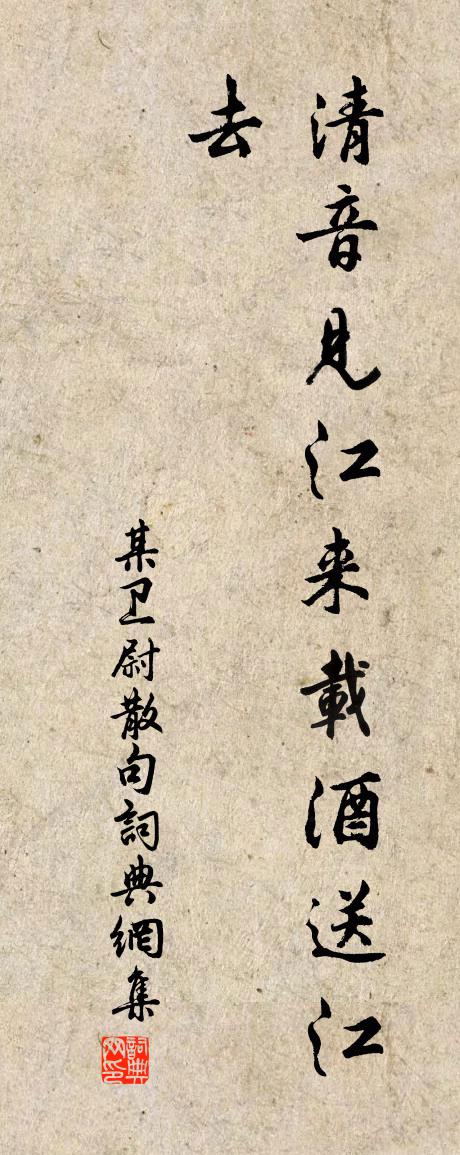 清音見江来載酒送江
去
某卫尉散句詞典網集
詞典
网印